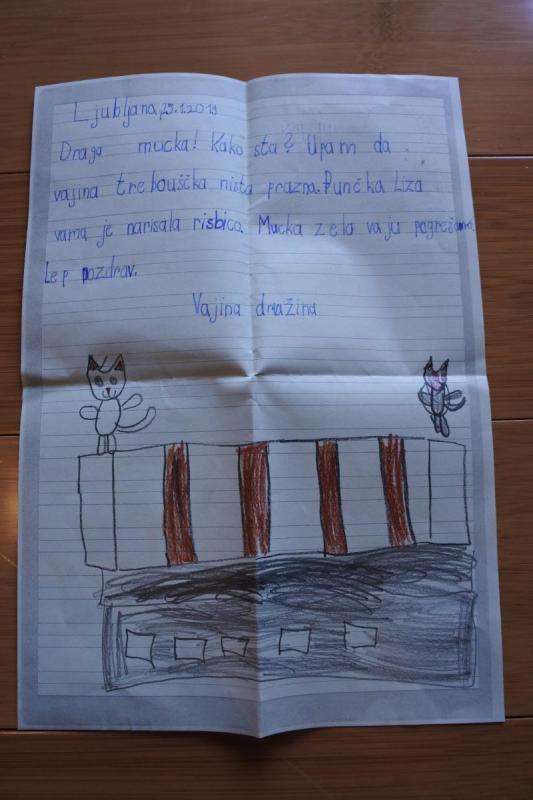 Ljubljana, 25.1.2019
Draga mucka! Kako sta? Upam da
vajina trebouščka nista prazna. Punčka Liza
vama je narisala risbico. Mucka zelo vaju pogrešamo.
Lep pozdrav.
Vajina družina